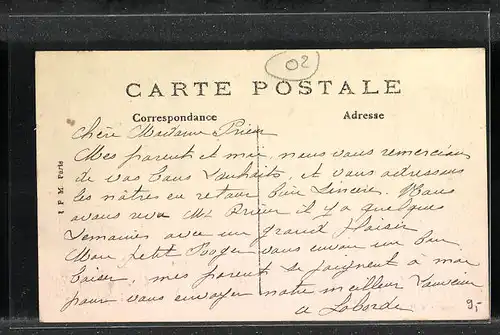 02
CARTE POSTALE
Correspondance
Adresse
Chère Madame Prieur
Mes parent et moi nous vous remercions
de vos bons souhaits, et vous adressons
les nôtres en retour bien sincères. Nous
avons revu Mr Prieur il y a quelques
semaines avec un grand plaisir
Mon petit Roger vous envoie un bon
baiser, mes parent se joignent à moi
pour vous envoyer notre meilleur souvenir
a Laborde
I P M Paris
9,-